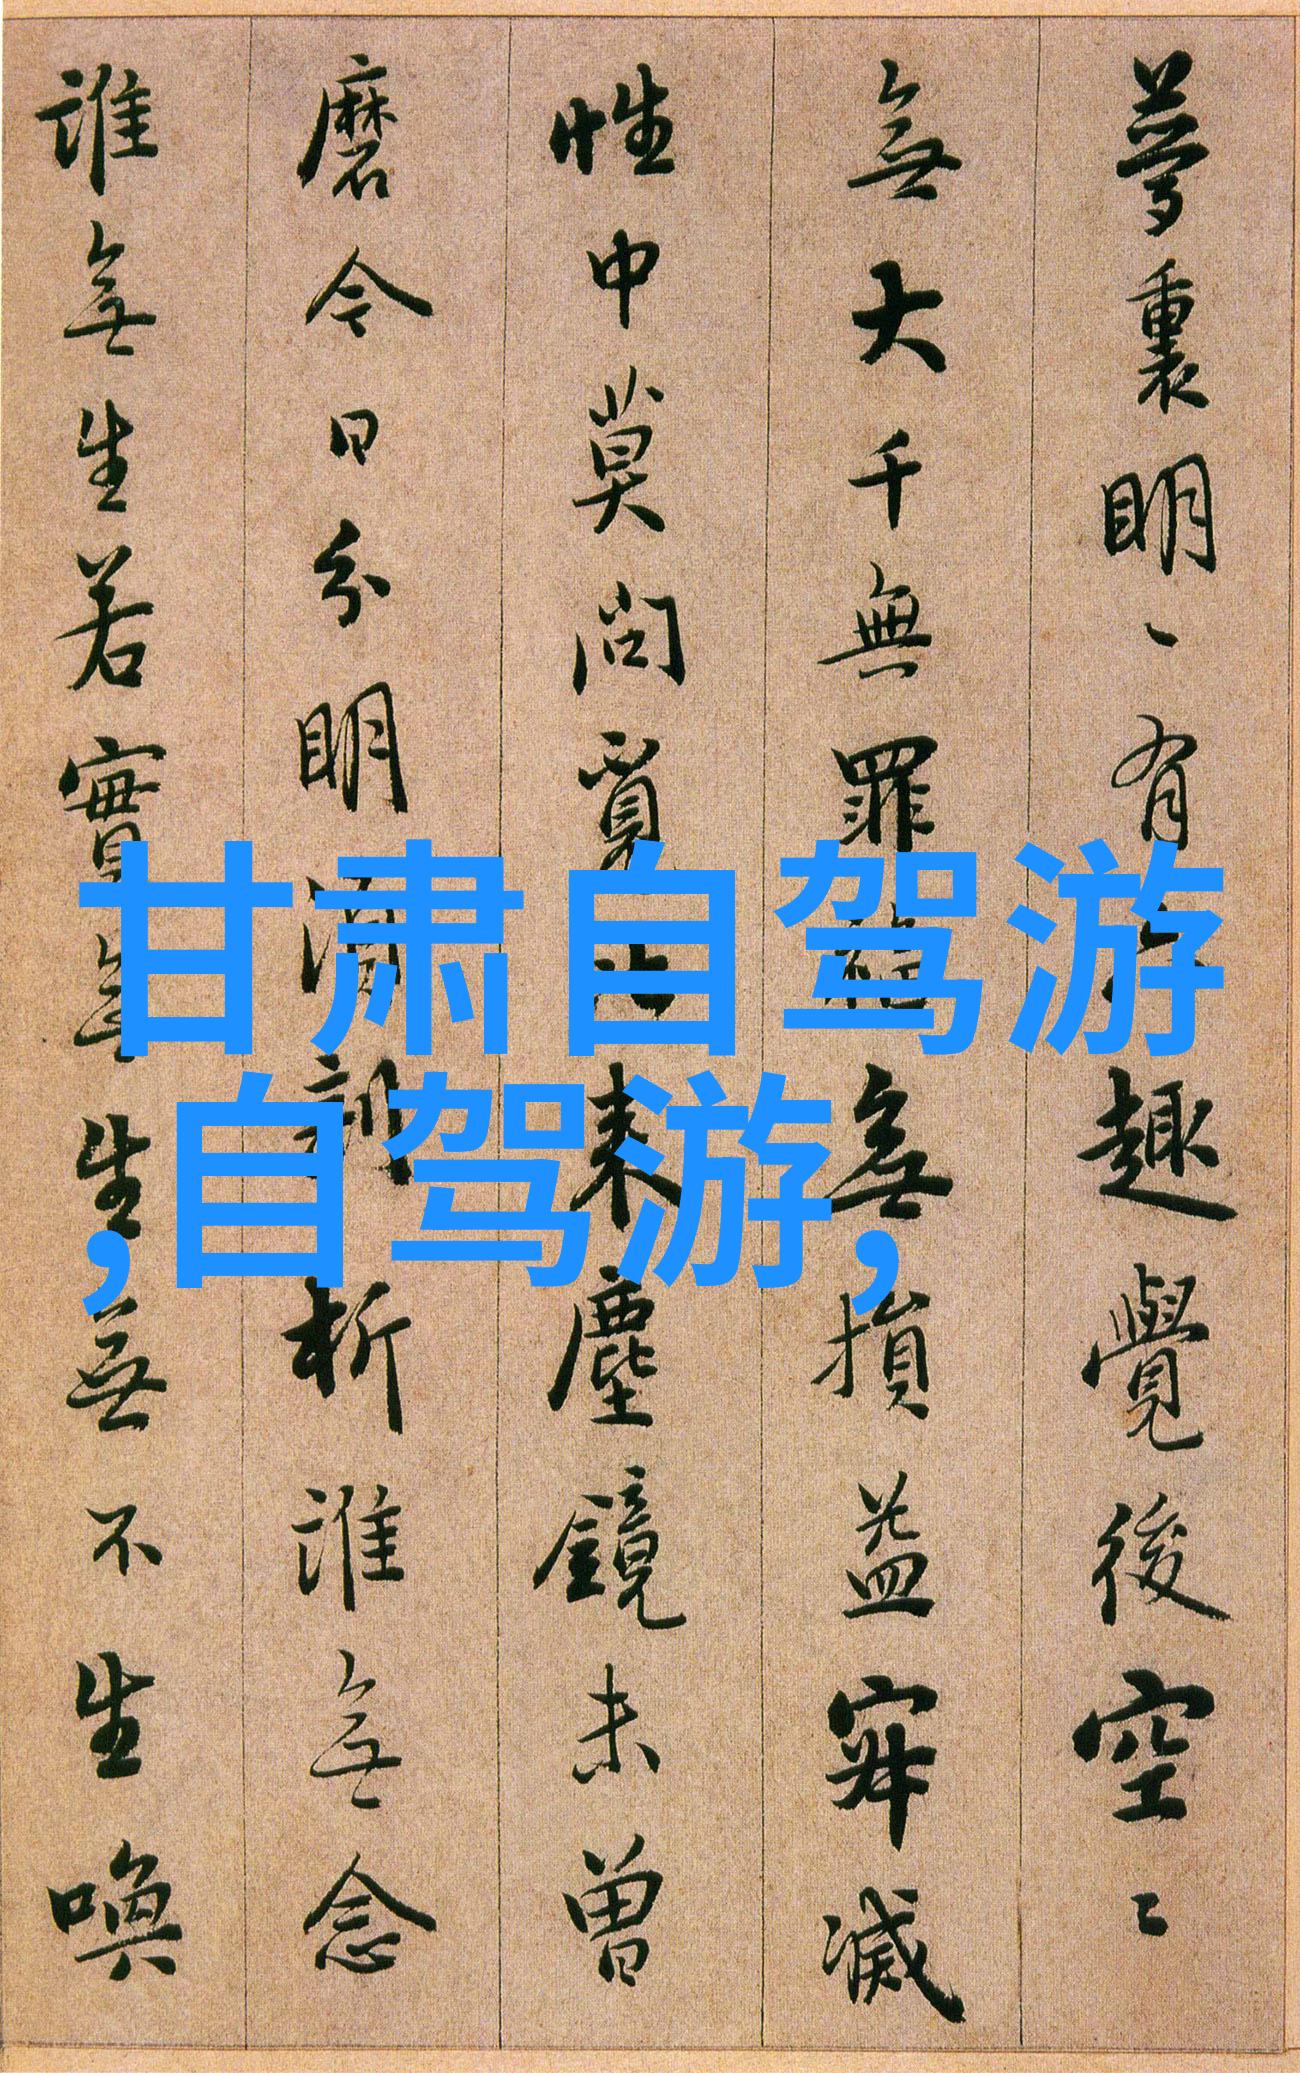 夢裏明〻有六趣覺後空〻
無大千無罪福無損益寂滅
性中莫問覓比來塵鏡未曾
磨今日分明須剖析誰無念
誰無生若實無生無不生喚
甘肃自驾游
,自驾游,